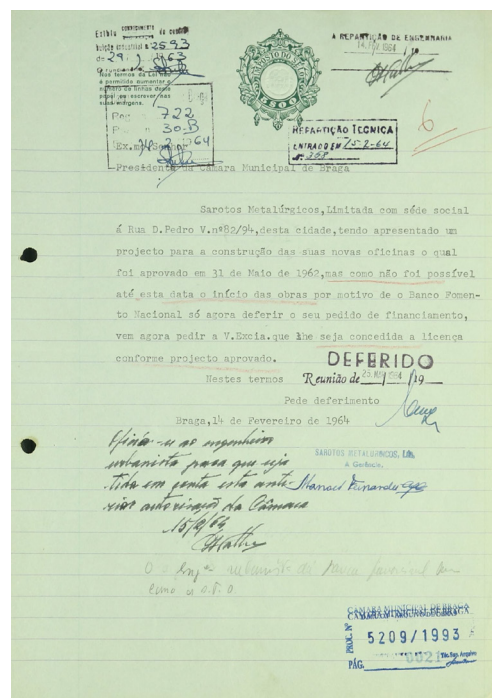 Exibiu CONHECIMENTO da contri-
buição industrial nº 2593
de 29/1/63
Nos termos da Lei não
é permitido aumentar o
número de linhas deste
papel ou escrever nas
suas margens.
A REPARTIÇÃO DE ENGENHARIA
14 FEV 1964
IMPOSTO DO SELO
5$00
722
30-B
REPARTIÇÃO TECNICA
ENTRADO EM 15-2-64
Nº 268
6
Ex.mo Senhor
Presidente da Câmara Municipal de Braga
Sarotos Metalúrgicos,Limitada com séde social
á Rua D.Pedro V.nº82/94,desta cidade,tendo apresentado um
projecto para a construção das suas novas oficinas o qual
foi aprovado em 31 de Maio de 1962,mas como não foi possível
até esta data o início das obras por motivo de o Banco Fomen-
to Nacional só agora deferir o seu pedido de financiamento,
vem agora pedir a V.Excia.que lhe seja concedida a licença
conforme projecto aprovado.
DEFERIDO
Nestes termos
Reunião de 25 MAR 1964 /19
Pede deferimento
Braga,14 de Fevereiro de 1964
Oficie-se ao engenheiro
urbanista para que seja
tida em conta esta ante-
rior autorização da Câmara
15/2/64
SAROTOS METALURGICOS, LDA.
A Gerência,
Manoel Fernandes
CAMARA MUNICIPAL DE BRAGA
PROC. Nº 5209/1993
PÁG. 0021
Téc. Sup. Arquivo